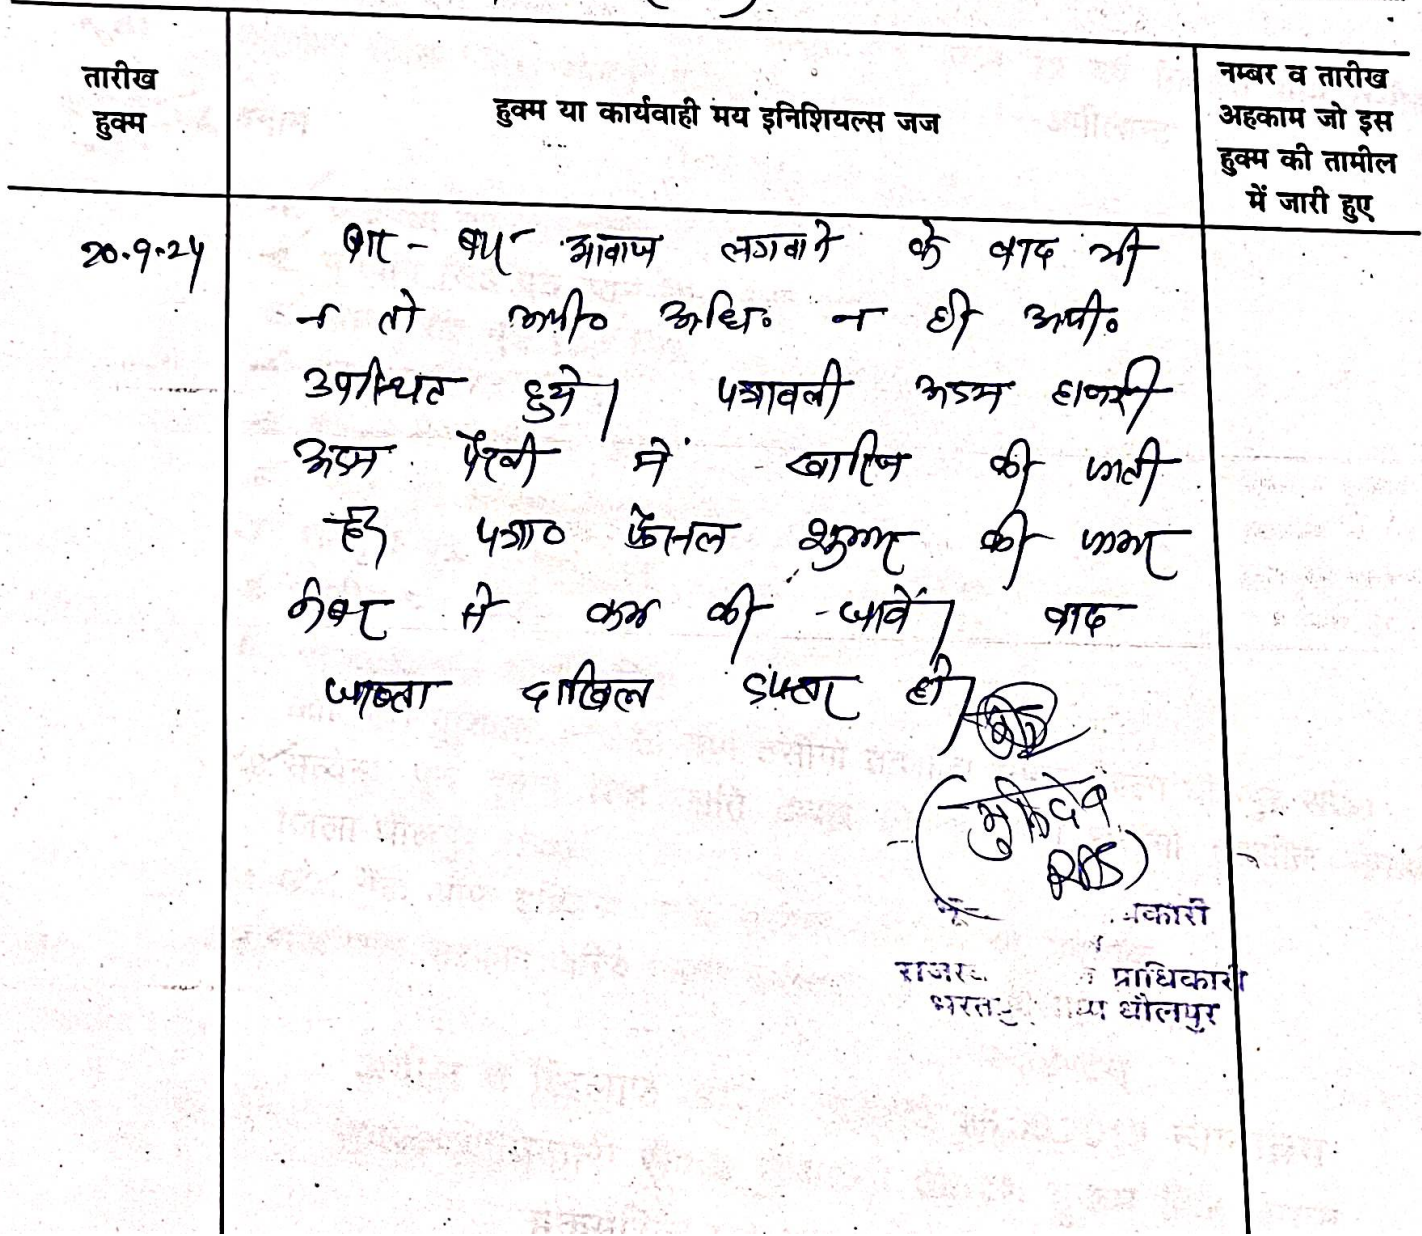 तारीख
हुक्म
हुक्म या कार्यवाही मय इनिशियल्स जज
नम्बर व तारीख
अहकाम जो इस
हुक्म की तामील
में जारी हुए
20.9.24
बार - बार आवाज लगवाने के बाद भी
न तो अपी० अधि० न ही अपी०
उपस्थित हुये। पत्रावली अदम हाजरी
अदम पैरवी में खारिज की जाती
है। पत्रा० फैसल शुमार की जाकर
नम्बर से कम की जावें। बाद
जाब्ता दाखिल दफ्तर हो।
(मुनिदेव
RAS)
कारी
प्राधिकारी
धौलपुर